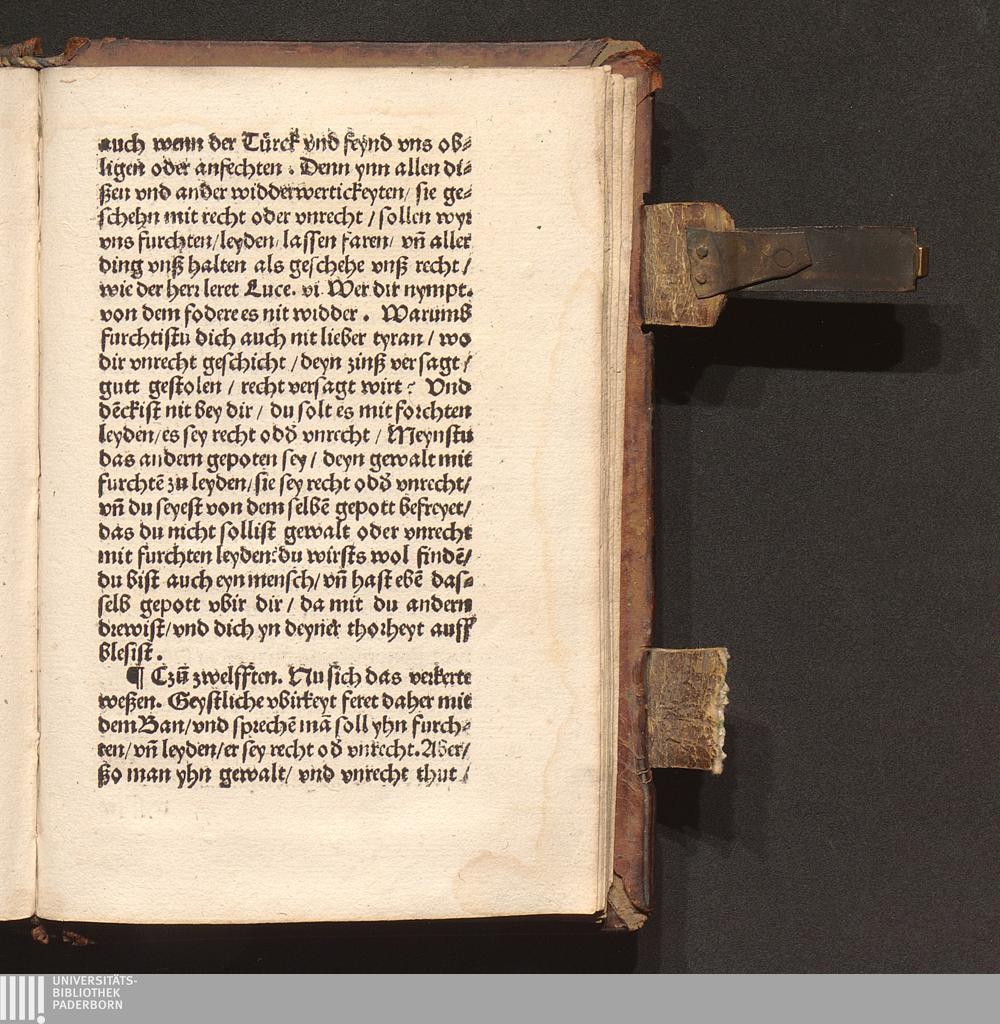 auch wenn der Türck vnd feynd vns ob⸗
ligen oder anfechten . Denn ynn allen di⸗
ßen vnd ander widderwertickeyten/ sie ge⸗
schehn mit recht oder vnrecht / sollen wyr
vns furchten/leyden/ lassen faren/ vñ aller
ding vnß halten als geschehe vnß recht /
wie der herr leret Luce. vi. Wer dir nympt.
von dem fodere es nit widder . Warumb
furchtistu dich auch nit lieber tyran / wo
dir vnrecht geschicht / deyn zinß versagt /
gutt gestolen / recht versagt wirt? Vnd
dẽckist nit bey dir / du solt es mit forchten
leyden/es sey recht odď vnrecht / Meynstu
das andern gepoten sey / deyn gewalt mit
furchtẽ zu leyden/sie sey recht odď vnrecht/
vñ du seyest von dem selbẽ gepott befreyet/
das du nicht sollist gewalt oder vnrecht
mit furchten leyden? du wirsts wol findẽ/
du bist auch eyn mensch/ vñ hast ebẽ das⸗
selb gepott vbir dir / da mit du andern
drewist/vnd dich yn deyner thorheyt auff
blesist .
¶ Czũ zwelfften. Nu sich das verkerte
weßen. Geystliche vbirkeyt feret daher mit
dem Ban/vnd sprechẽ mã soll yhn furch⸗
ten/ vñ leyden/er sey recht oď vnrecht. Aber/
ßo man yhn gewalt/ vnd vnrecht thut /
UNIVERSITÄTS-
BIBLIOTHEK
PADERBORN